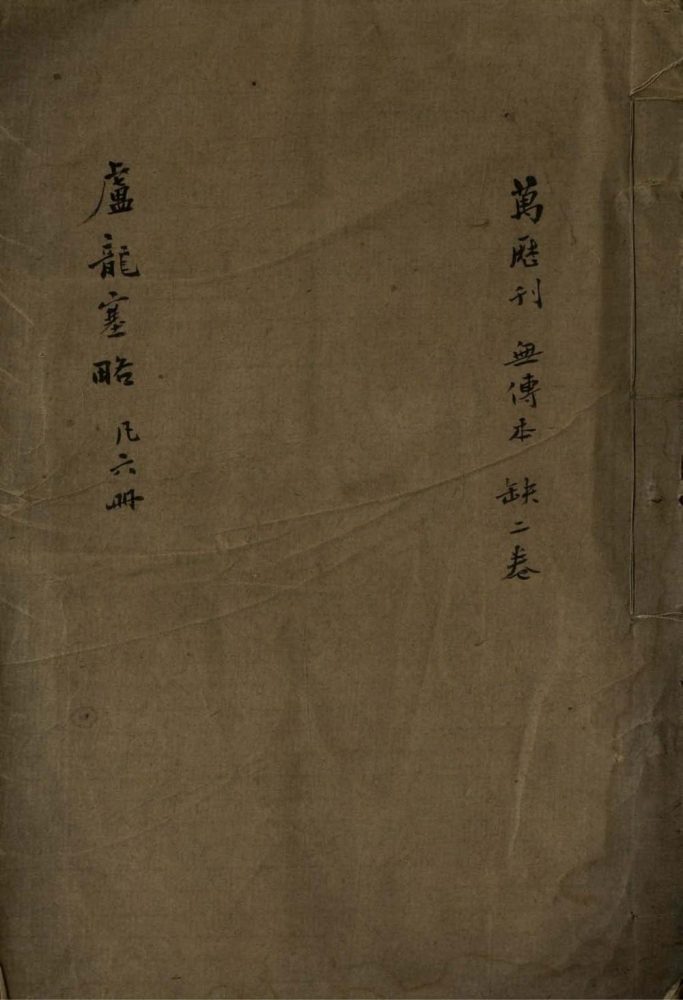 萬歷刊 無傳本 缺二卷
盧龍塞略 凡六冊